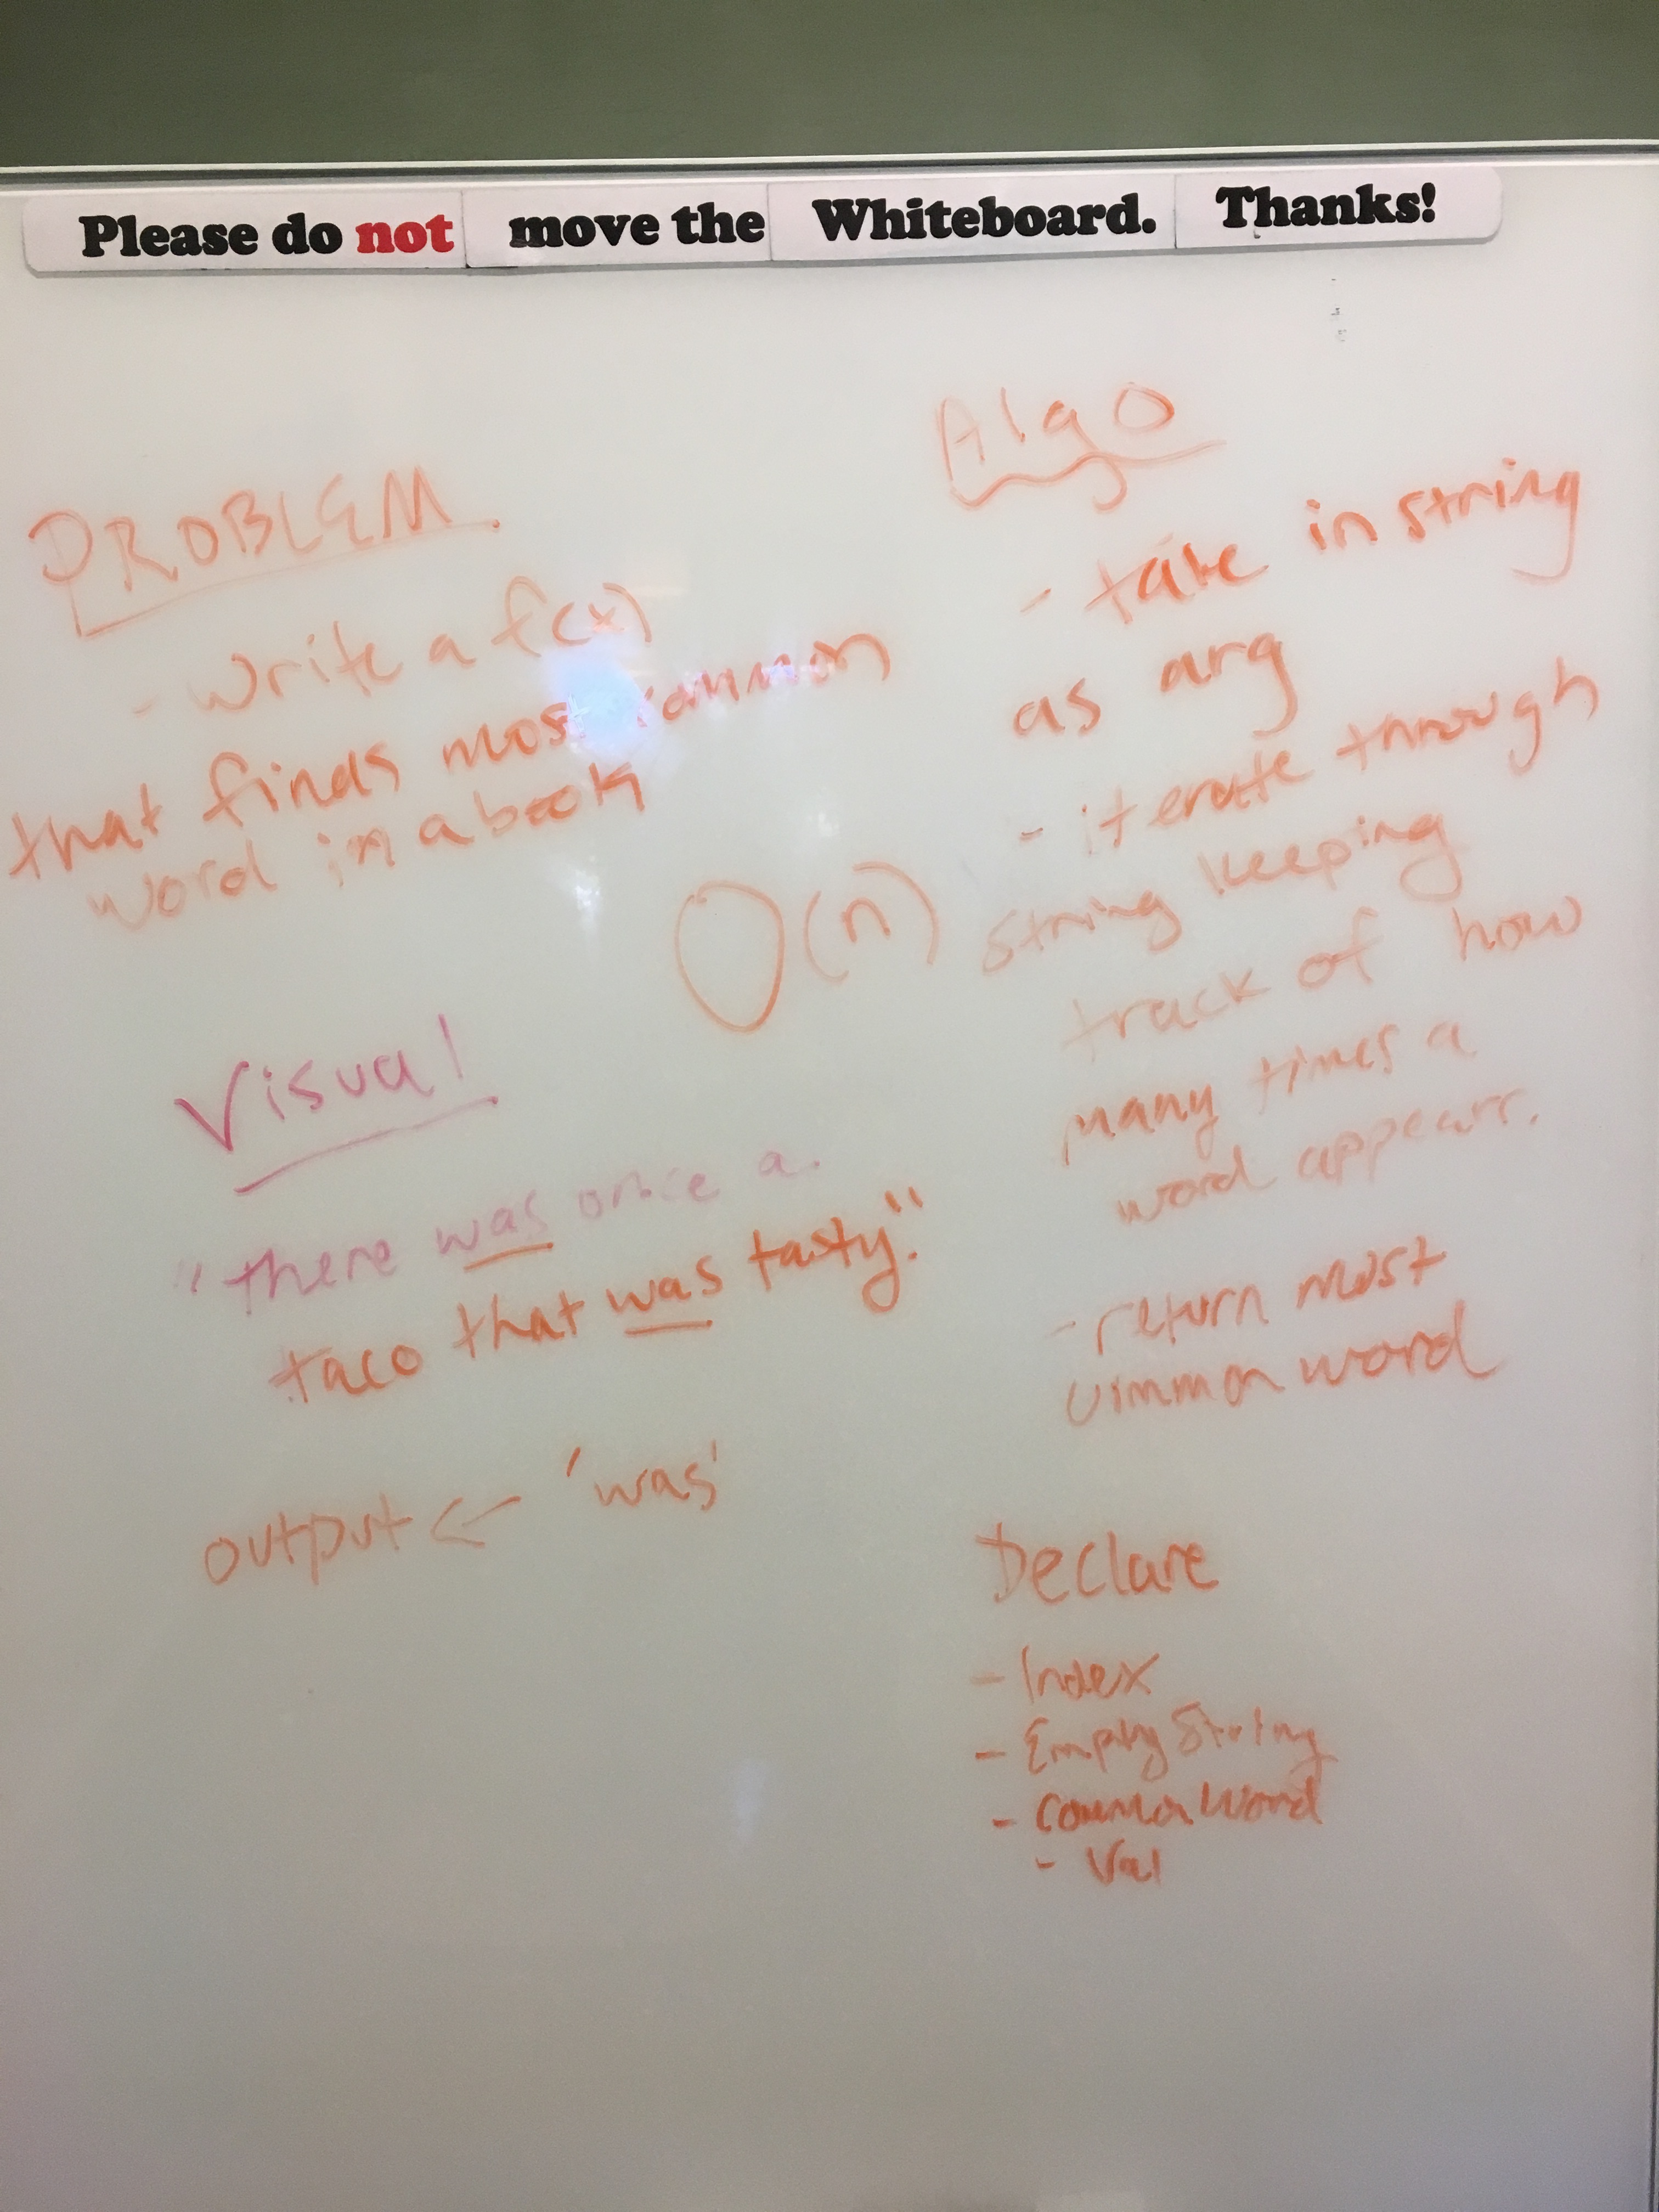 Please do not move the Whiteboard. Thanks!
PROBLEM
- write a f(x)
that finds most common
word in a book
O(n)
Visual
"there was once a
taco that was tasty."
output <- 'was'
Algo
- take in string
as arg
- iterate through
string keeping
track of how
many times a
word appears.
- return most
common word
Declare
- Index
- Empty String
- Common Word
- Val